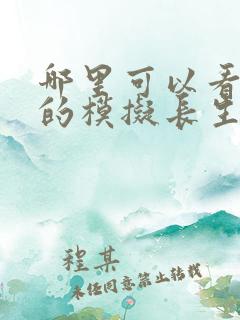 哪里可以看
的模拟长生
程某
未经同意禁止转载